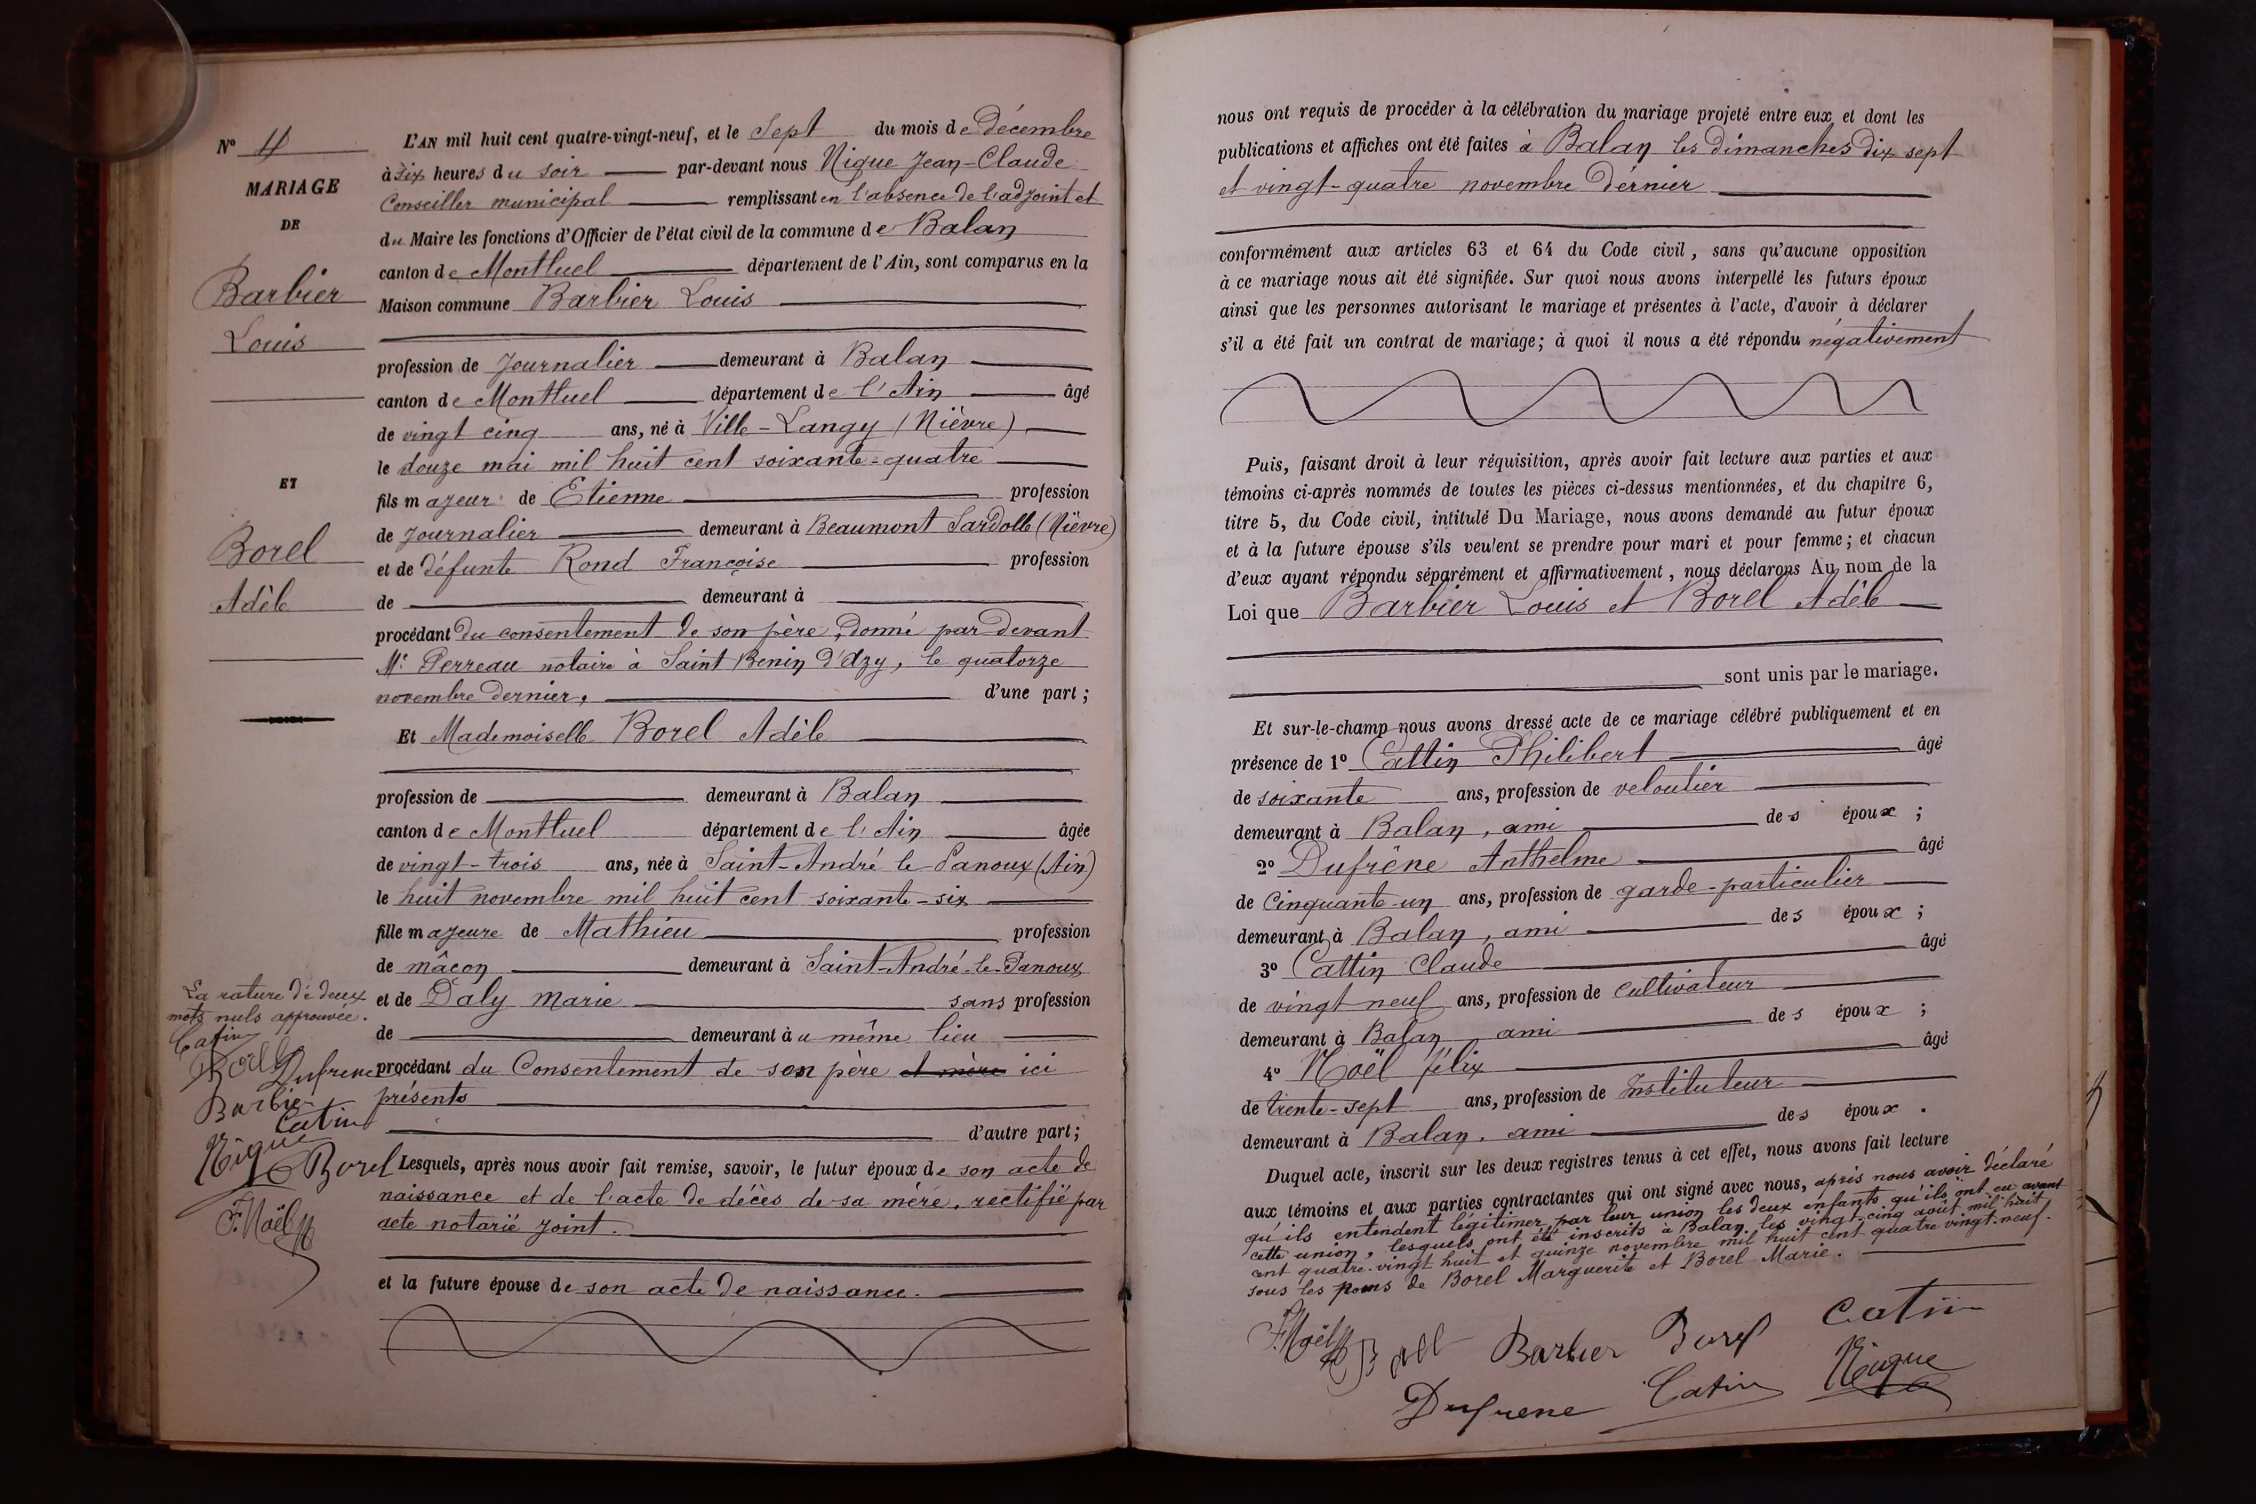 N° 4
MARIAGE
DE
Barbier
Louis
ET
Borel
Adèle
La rature de deux
mots nuls approuvée.
Catin
Borel
Dufrene
Barbier
Catin
Nique
Borel
F. Noël
L'AN mil huit cent quatre-vingt-neuf, et le Sept du mois de Décembre
à six heures du soir par-devant nous Nique Jean-Claude
Conseiller municipal remplissant en l'absence de l'adjoint et
du Maire les fonctions d'Officier de l'état civil de la commune de Balan
canton de Montluel département de l'Ain, sont comparus en la
Maison commune Barbier Louis
profession de Journalier demeurant à Balan
canton de Montluel département de l'Ain âgé
de vingt cinq ans, né à Ville-Langy (Nièvre)
le douze mai mil huit cent soixante-quatre
fils majeur de Etienne profession
de Journalier demeurant à Beaumont Sardolle (Nièvre)
et de défunte Rond Françoise profession
de demeurant à
procédant du consentement de son père, donné par devant
Me Perreau notaire à Saint Benin d'Azy, le quatorze
novembre dernier, d'une part;
Et Mademoiselle Borel Adèle
profession de demeurant à Balan
canton de Montluel département de l'Ain âgée
de vingt-trois ans, née à Saint-André le Panoux (Ain)
le huit novembre mil huit cent soixante-six
fille majeure de Mathieu profession
de mâcon demeurant à Saint-André-le-Panoux
et de Daly Marie sans profession
de demeurant au même lieu
procédant du Consentement de son père et mère ici
présents
d'autre part;
Lesquels, après nous avoir fait remise, savoir, le futur époux de son acte de
naissance et de l'acte de décès de sa mère, rectifié par
acte notarié joint.
et la future épouse de son acte de naissance.
nous ont requis de procéder à la célébration du mariage projeté entre eux et dont les
publications et affiches ont été faites à Balan les dimanches dix sept
et vingt-quatre novembre dernier
conformément aux articles 63 et 64 du Code civil, sans qu'aucune opposition
à ce mariage nous ait été signifiée. Sur quoi nous avons interpellé les futurs époux
ainsi que les personnes autorisant le mariage et présentes à l'acte, d'avoir à déclarer
s'il a été fait un contrat de mariage; à quoi il nous a été répondu négativement
Puis, faisant droit à leur réquisition, après avoir fait lecture aux parties et aux
témoins ci-après nommés de toutes les pièces ci-dessus mentionnées, et du chapitre 6,
titre 5, du Code civil, intitulé Du Mariage, nous avons demandé au futur époux
et à la future épouse s'ils veulent se prendre pour mari et pour femme; et chacun
d'eux ayant répondu séparément et affirmativement, nous déclarons Au nom de la
Loi que Barbier Louis et Borel Adèle
sont unis par le mariage.
Et sur-le-champ nous avons dressé acte de ce mariage célébré publiquement et en
présence de 1° Cattin Philibert âgé
de soixante ans, profession de veloutier
demeurant à Balan, ami des époux;
2° Dufrêne Anthelme âgé
de Cinquante-un ans, profession de garde-particulier
demeurant à Balan, ami des époux;
3° Cattin Claude âgé
de vingt neuf ans, profession de cultivateur
demeurant à Balan ami des époux;
4° Noël félix âgé
de trente-sept ans, profession de Instituteur
demeurant à Balan, ami des époux.
Duquel acte, inscrit sur les deux registres tenus à cet effet, nous avons fait lecture
aux témoins et aux parties contractantes qui ont signé avec nous, après nous avoir déclaré
qu'ils entendent légitimer par leur union les deux enfants qu'ils ont eu avant
cette union, lesquels ont été inscrits à Balan, les vingt-cinq août mil huit
cent quatre-vingt huit et quinze novembre mil huit cent quatre vingt-neuf.
sous les noms de Borel Marguerite et Borel Marie.
F. Noël Borel Barbier Borel Catin
Dufrene Catin Nique